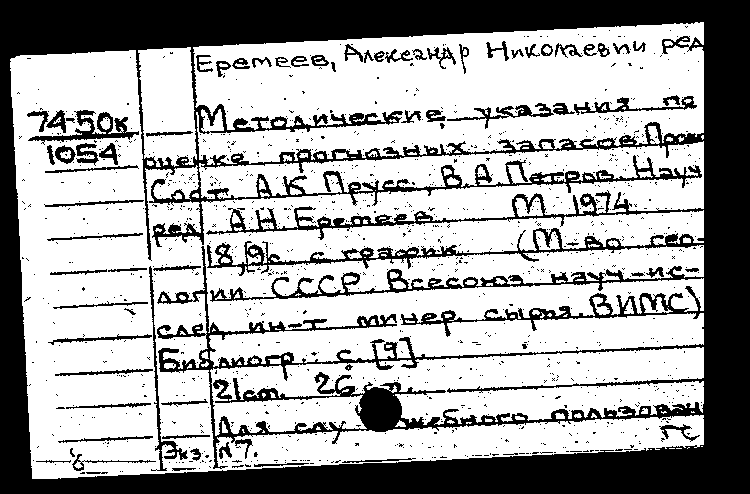 Еремеев, Александр Николаевич ред
74-50к
1054
Методические указания по
оценке прогнозных запасов. Пром
Сост. А.К Прусс, В.А. Петров. Науч
ред А.Н. Еремеев. М, 1974
18,[9]с с график. (М-во гео-
логии СССР. Всесоюз науч-ис-
след ин-т минер. сырья. ВИМС)
Библиогр.: с. [9].
21см. 26
Для служебного пользован
Экз. №7.